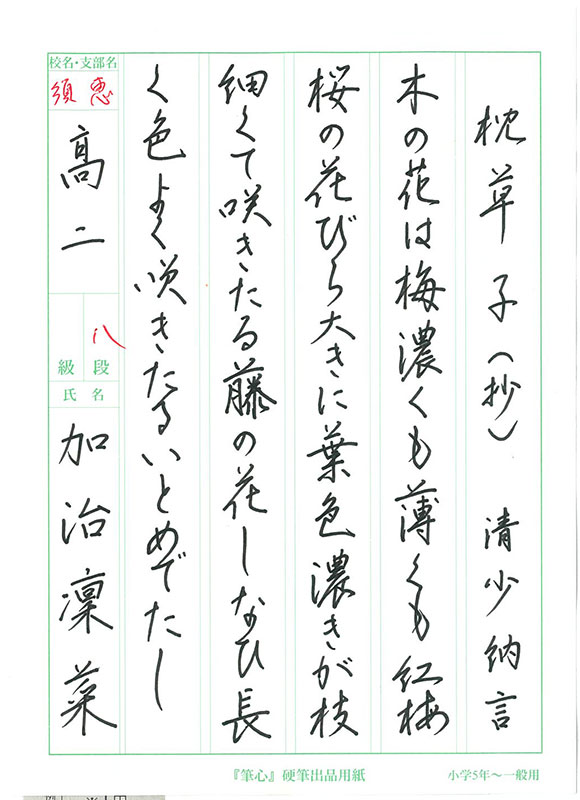 枕草子(抄) 清少納言
木の花は梅濃くも薄くも紅梅
桜の花びら大きに葉色濃きが枝
細くて咲きたる藤の花しなひ長
く色よく咲きたるいとめでたし
校名・支部名
須恵
高二
八
級 段
氏名
加治凜菜
『筆心』硬筆出品用紙
小学5年〜一般用